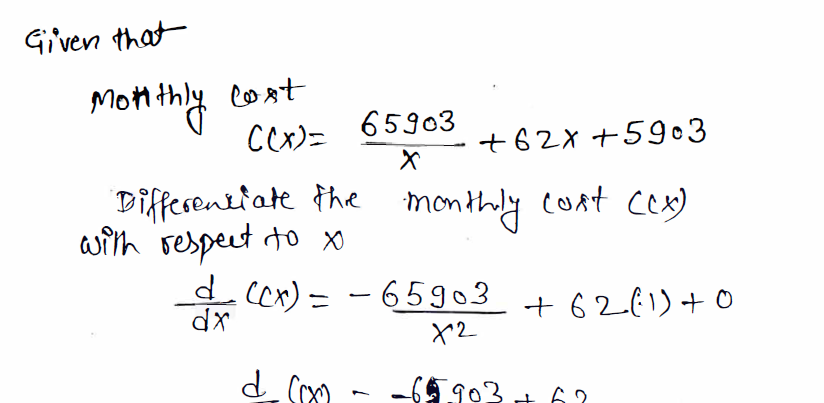 Given that
Monthly cost
C(x) = 65903/x + 62x + 5903
Differentiate the monthly cost C(x)
with respect to x
d/dx C(x) = -65903/x2 + 62(1) + 0
d C(x) - -65903 + 62